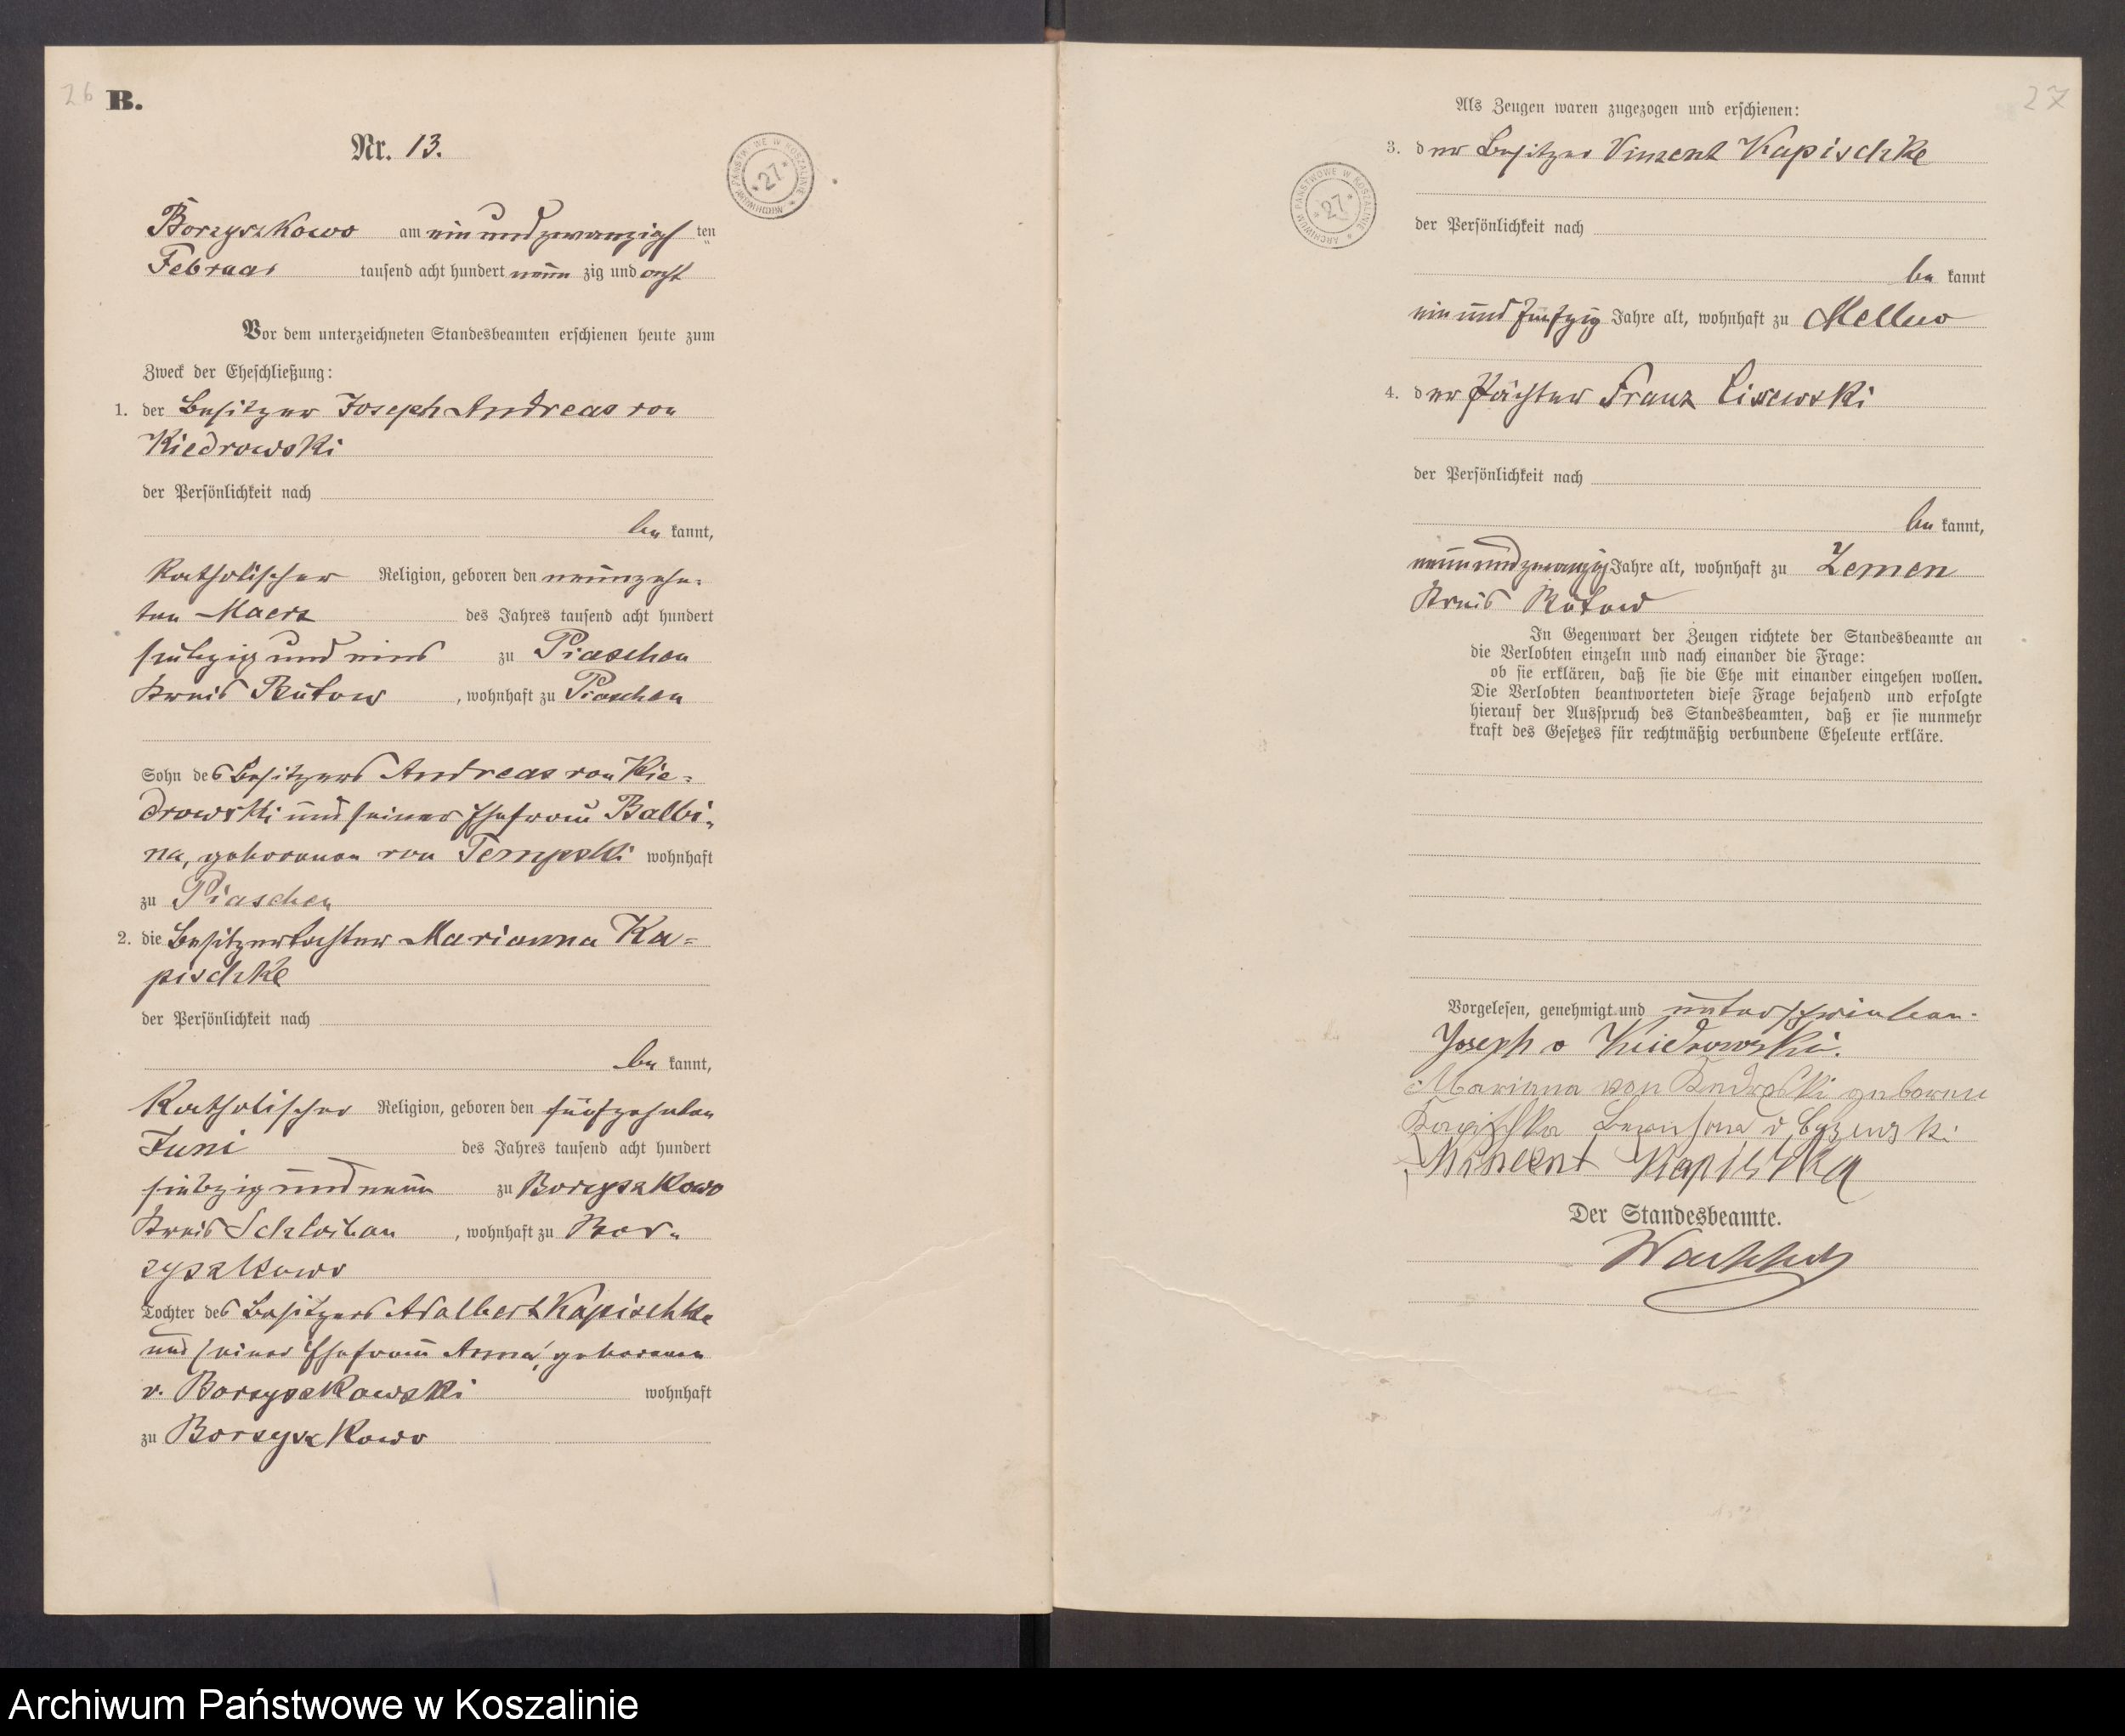 26
B.
Nr. 13.
ARCHIWUM PAŃSTWOWE W KOSZALINIE
*27*
Borzyszkowo am ein und zwanzigs ten
Februar tausend acht hundert neun zig und acht
Vor dem unterzeichneten Standesbeamten erschienen heute zum
Zweck der Eheschließung:
1. der Besitzer Joseph Andreas von
Kiedrowski
der Persönlichkeit nach
be kannt,
katholischer Religion, geboren den neunzehn-
ten Maerz des Jahres tausend acht hundert
siebzig und eins zu Piaschen
Kreis Bütow, wohnhaft zu Piaschen
Sohn des Besitzers Andreas von Kie-
drowski und seiner Ehefrau Balbi-
na, geborenen von Tempski wohnhaft
zu Piaschen
2. die Besitzertochter Marianna Ka-
pischke
der Persönlichkeit nach
be kannt,
katholischer Religion, geboren den fünfzehnten
Juni des Jahres tausend acht hundert
siebzig und neun zu Borzyszkowo
Kreis Schlochau, wohnhaft zu Bor-
zyszkowo
Tochter des Besitzers Adalbert Kapischke
und seiner Ehefrau Anna, geborenen
v. Borzyszkowski wohnhaft
zu Borzyszkowo
27
Als Zeugen waren zugezogen und erschienen:
3. der Besitzer Vincent Kapischke
ARCHIWUM PAŃSTWOWE W KOSZALINIE
*27*
der Persönlichkeit nach
be kannt
ein und fünfzig Jahre alt, wohnhaft zu Mellno
4. der Pächter Franz Lisewski
der Persönlichkeit nach
be kannt,
neun und zwanzig Jahre alt, wohnhaft zu Zemen
Kreis Bütow
In Gegenwart der Zeugen richtete der Standesbeamte an
die Verlobten einzeln und nach einander die Frage:
ob sie erklären, daß sie die Ehe mit einander eingehen wollen.
Die Verlobten beantworteten diese Frage bejahend und erfolgte
hierauf der Ausspruch des Standesbeamten, daß er sie nunmehr
kraft des Gesetzes für rechtmäßig verbundene Eheleute erkläre.
Vorgelesen, genehmigt und unterschrieben.
Joseph v Kiedrowski.
Marianna von geborene
Vincent Kapischka
Der Standesbeamte.
Archiwum Państwowe w Koszalinie